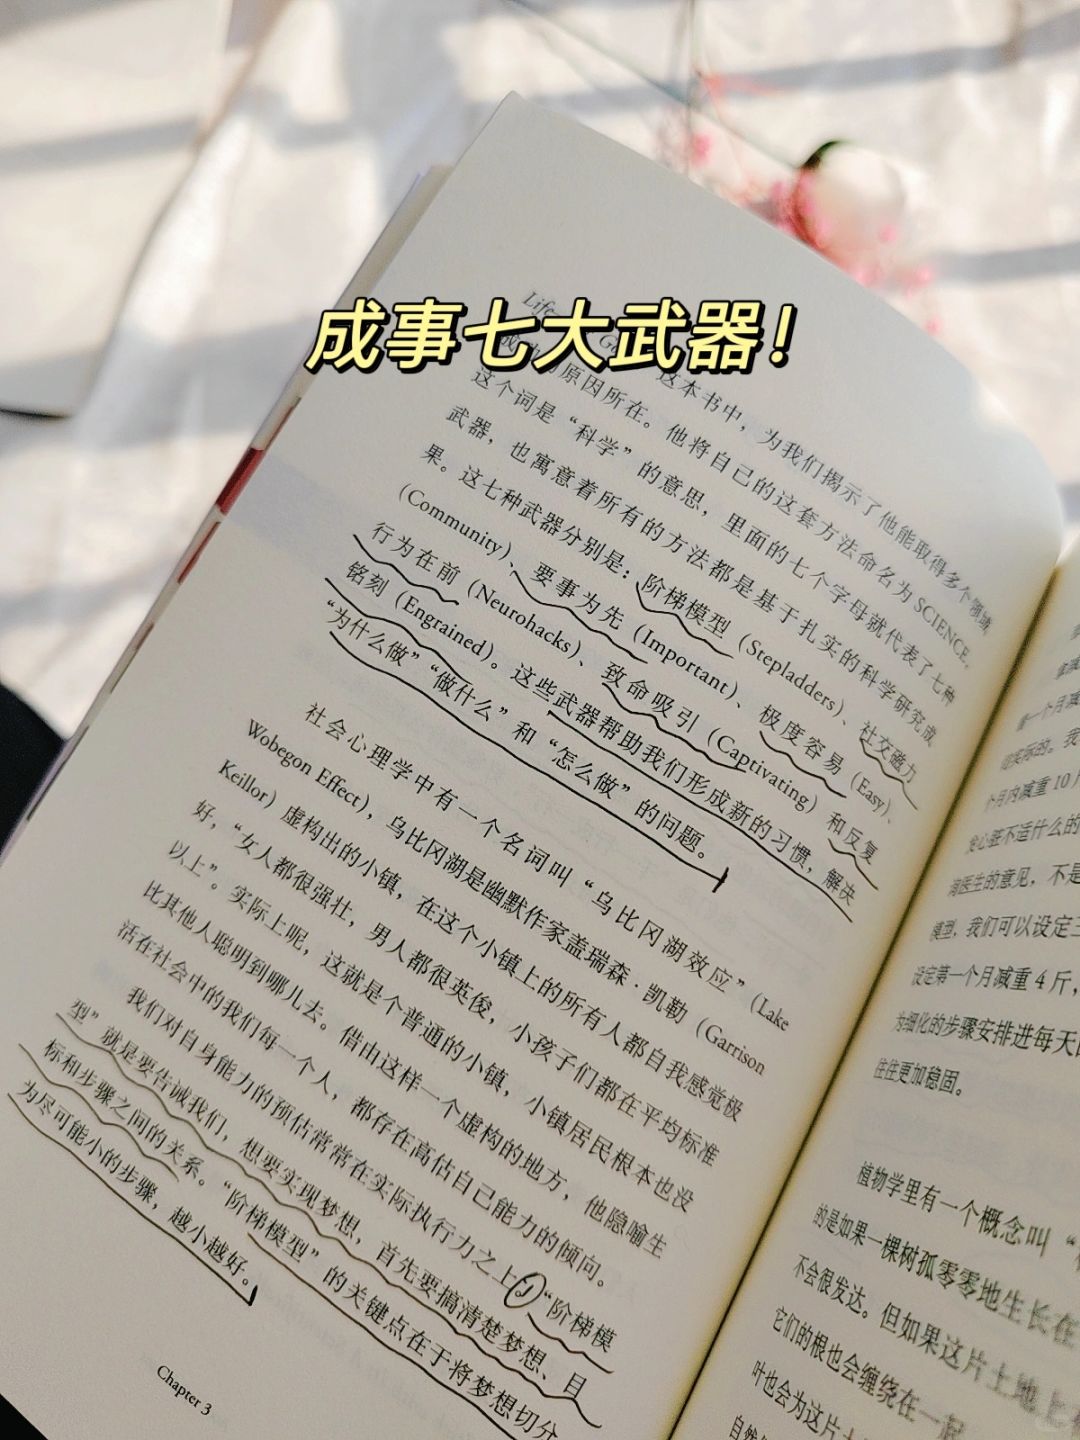 成事七大武器！
Life
这本书中，为我们揭示了他能取得多个领域
原因所在。他将自己的这套方法命名为SCIENCE，
这个词是“科学”的意思，里面的七个字母就代表了七种
武器，也寓意着所有的方法都是基于扎实的科学研究成
果。这七种武器分别是：阶梯模型（Stepladders）、社交磁力
（Community）、要事为先（Important）、极度容易（Easy）、
行为在前（Neurohacks）、致命吸引（Captivating）和反复
铭刻（Engrained）。这些武器帮助我们形成新的习惯，解决
“为什么做”“做什么”和“怎么做”的问题。
社会心理学中有一个名词叫“乌比冈湖效应”（Lake
Wobegon Effect），乌比冈湖是幽默作家盖瑞森·凯勒（Garrison
Keillor）虚构出的小镇，在这个小镇上的所有人都自我感觉极
好，“女人都很强壮，男人都很英俊，小孩子们都在平均标准
以上”。实际上呢，这就是个普通的小镇，小镇居民根本也没
比其他人聪明到哪儿去。借由这样一个虚构的地方，他隐喻生
活在社会中的我们每一个人，都存在高估自己能力的倾向。
我们对自身能力的预估常常在实际执行力之上。“阶梯模
型”就是要告诫我们，想要实现梦想，首先要搞清楚梦想、目
标和步骤之间的关系。“阶梯模型”的关键点在于将梦想切分
为尽可能小的步骤，越小越好。
Chapter 3
第一个月减
现实际的。我
个月内减重10
心脏不适什么的
询医生的意见，不是
模型，我们可以设定三
设定第一个月减重4斤，
为细化的步骤安排进每天
往往更加稳固。
植物学里有一个概念叫“
的是如果一棵树孤零零地生长在
不会很发达。但如果这片土地上
它们的根也会缠绕在一起
叶也会为这片土
自然